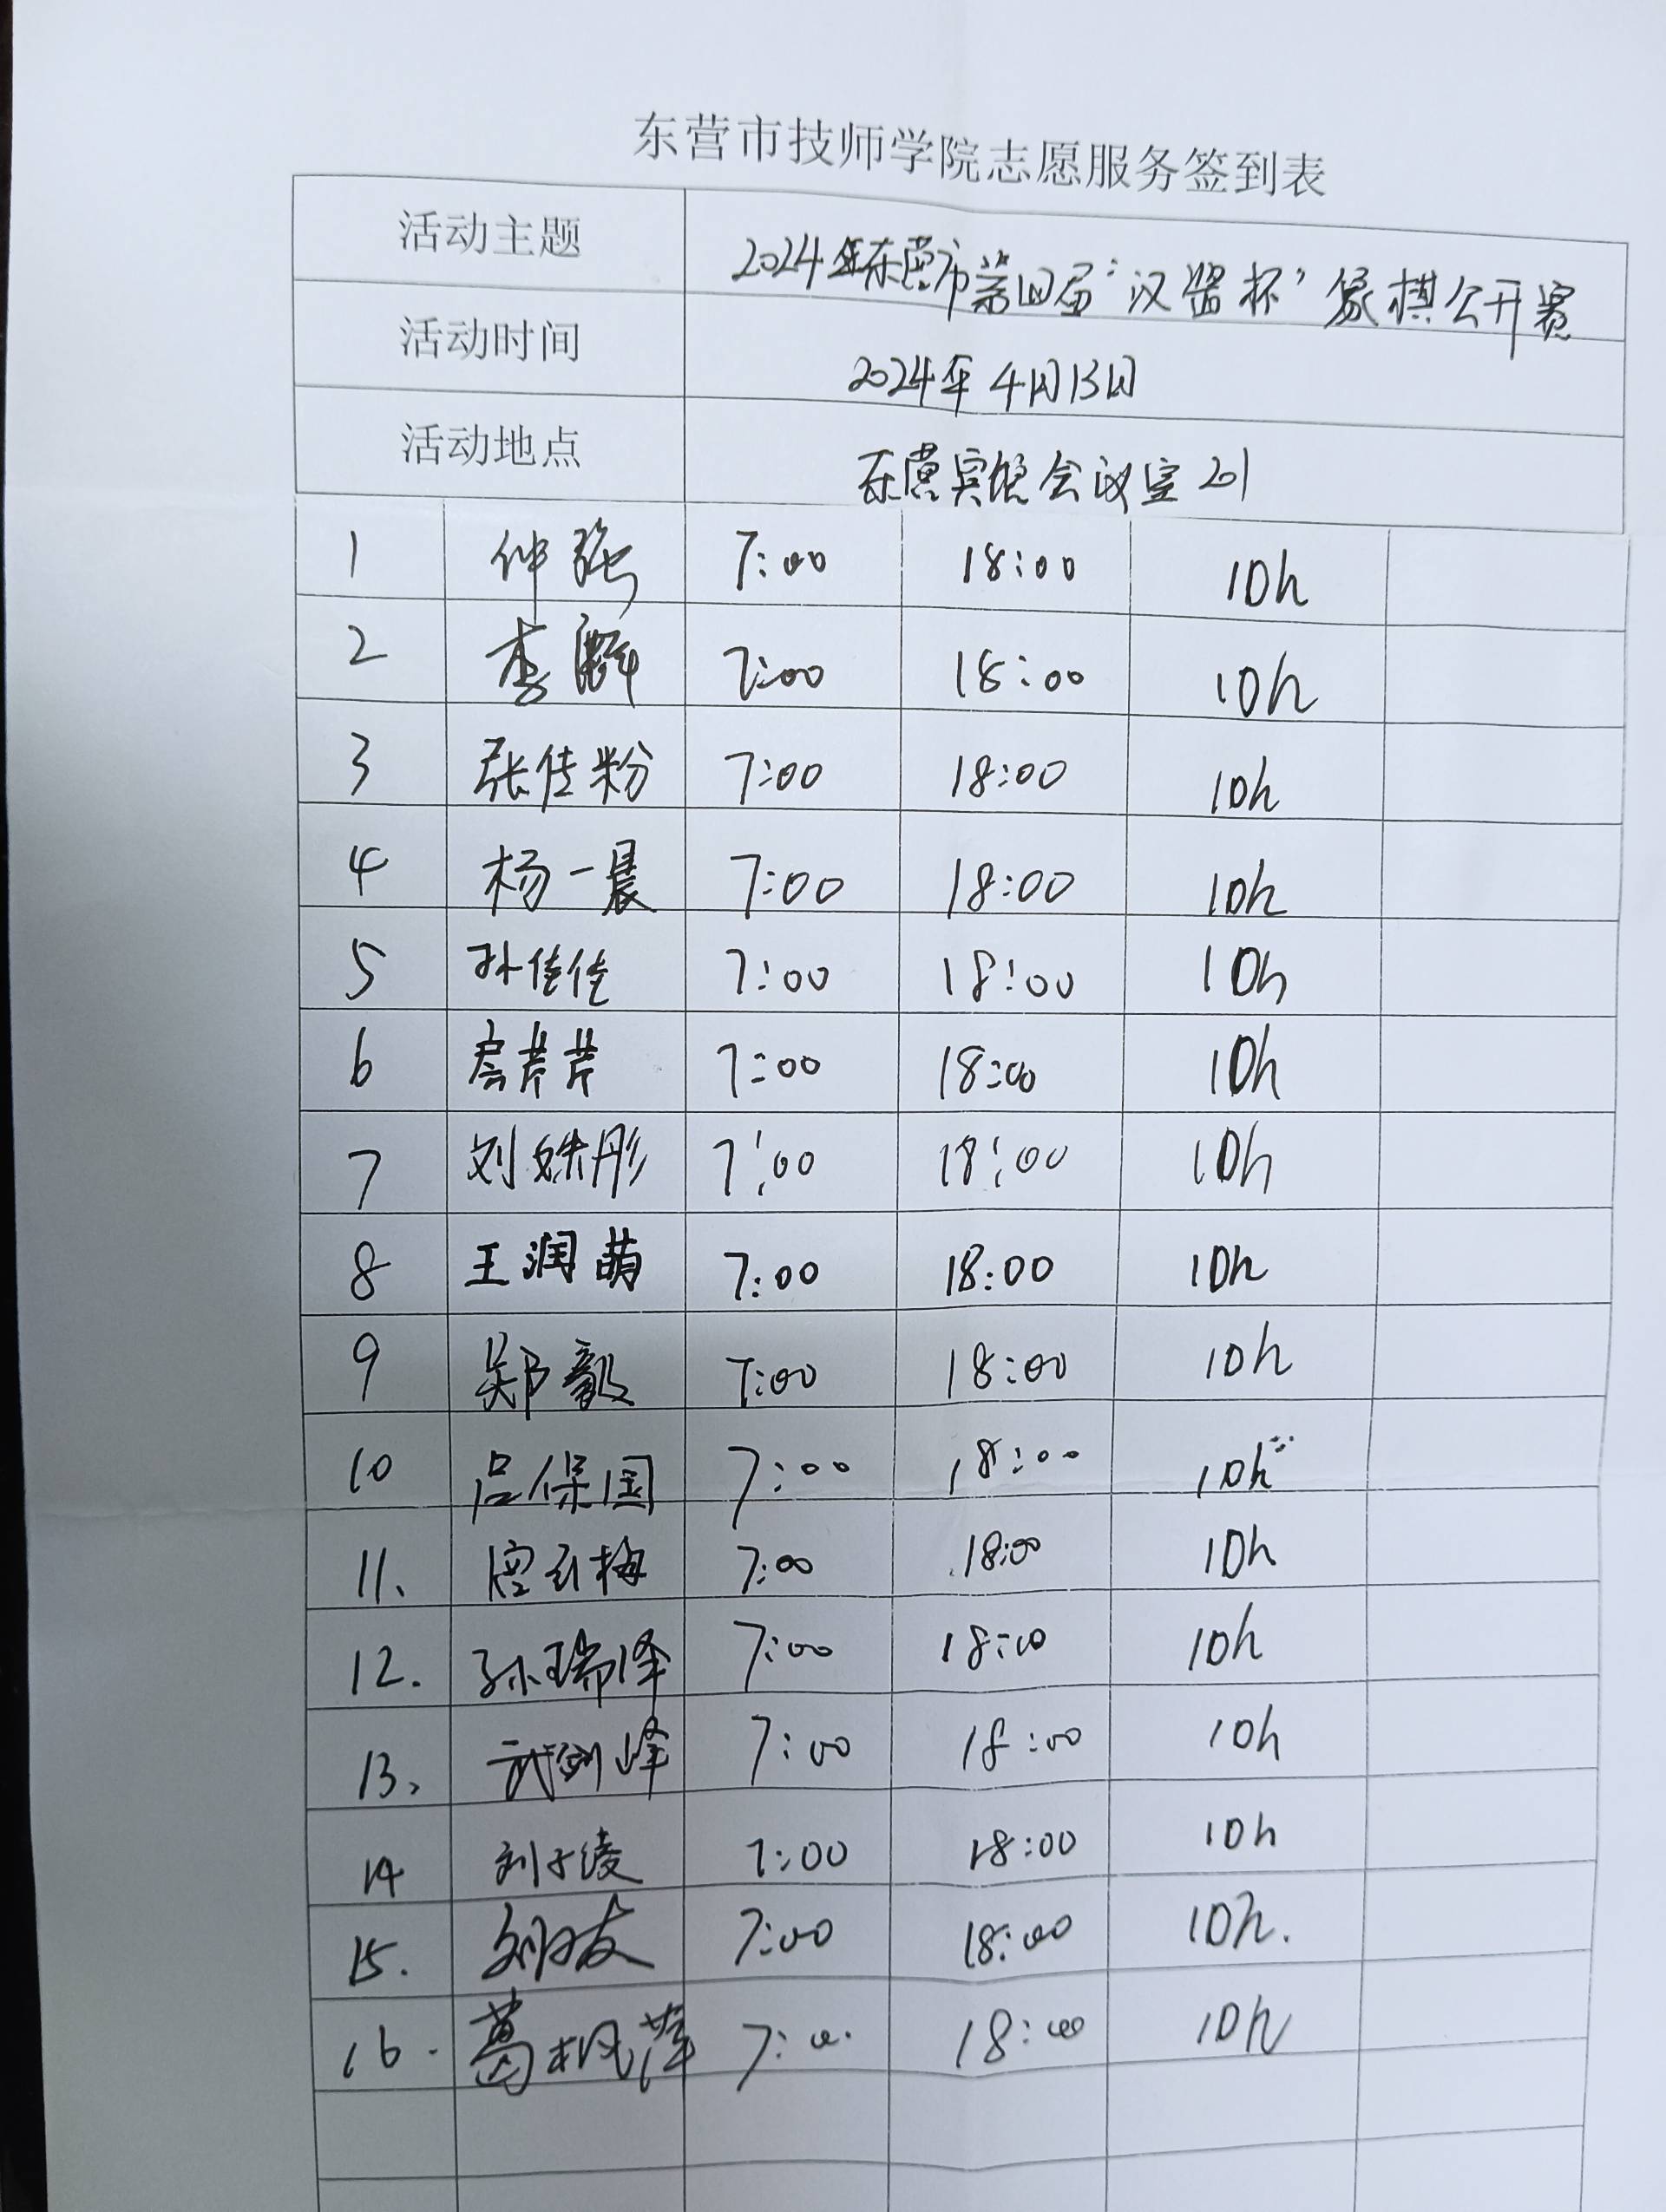 东营市技师学院志愿服务签到表
活动主题 2024年东营市第四届“汉酱杯”象棋公开赛
活动时间 2024年4月13日
活动地点 东营宾馆会议室201
1 仲强 7:00 18:00 10h
2 李 7:00 18:00 10h
3 张佳粉 7:00 18:00 10h
4 杨一晨 7:00 18:00 10h
5 孙佳佳 7:00 18:00 10h
6 房芹芹 7:00 18:00 10h
7 刘姝彤 7:00 18:00 10h
8 王润萌 7:00 18:00 10h
9 郑毅 7:00 18:00 10h
10 吕保国 7:00 18:00 10h
11、 梅 7:00 18:00 10h
12. 孙瑞泽 7:00 18:00 10h
13、 武剑峰 7:00 18:00 10h
14 刘子凌 7:00 18:00 10h
15. 刘友 7:00 18:00 10h.
16. 葛枫萍 7:00 18:00 10h